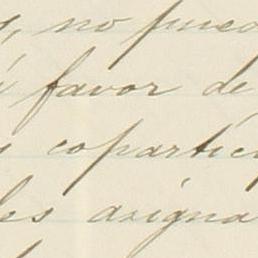 , no pued
favor de
copartíci
les asigna